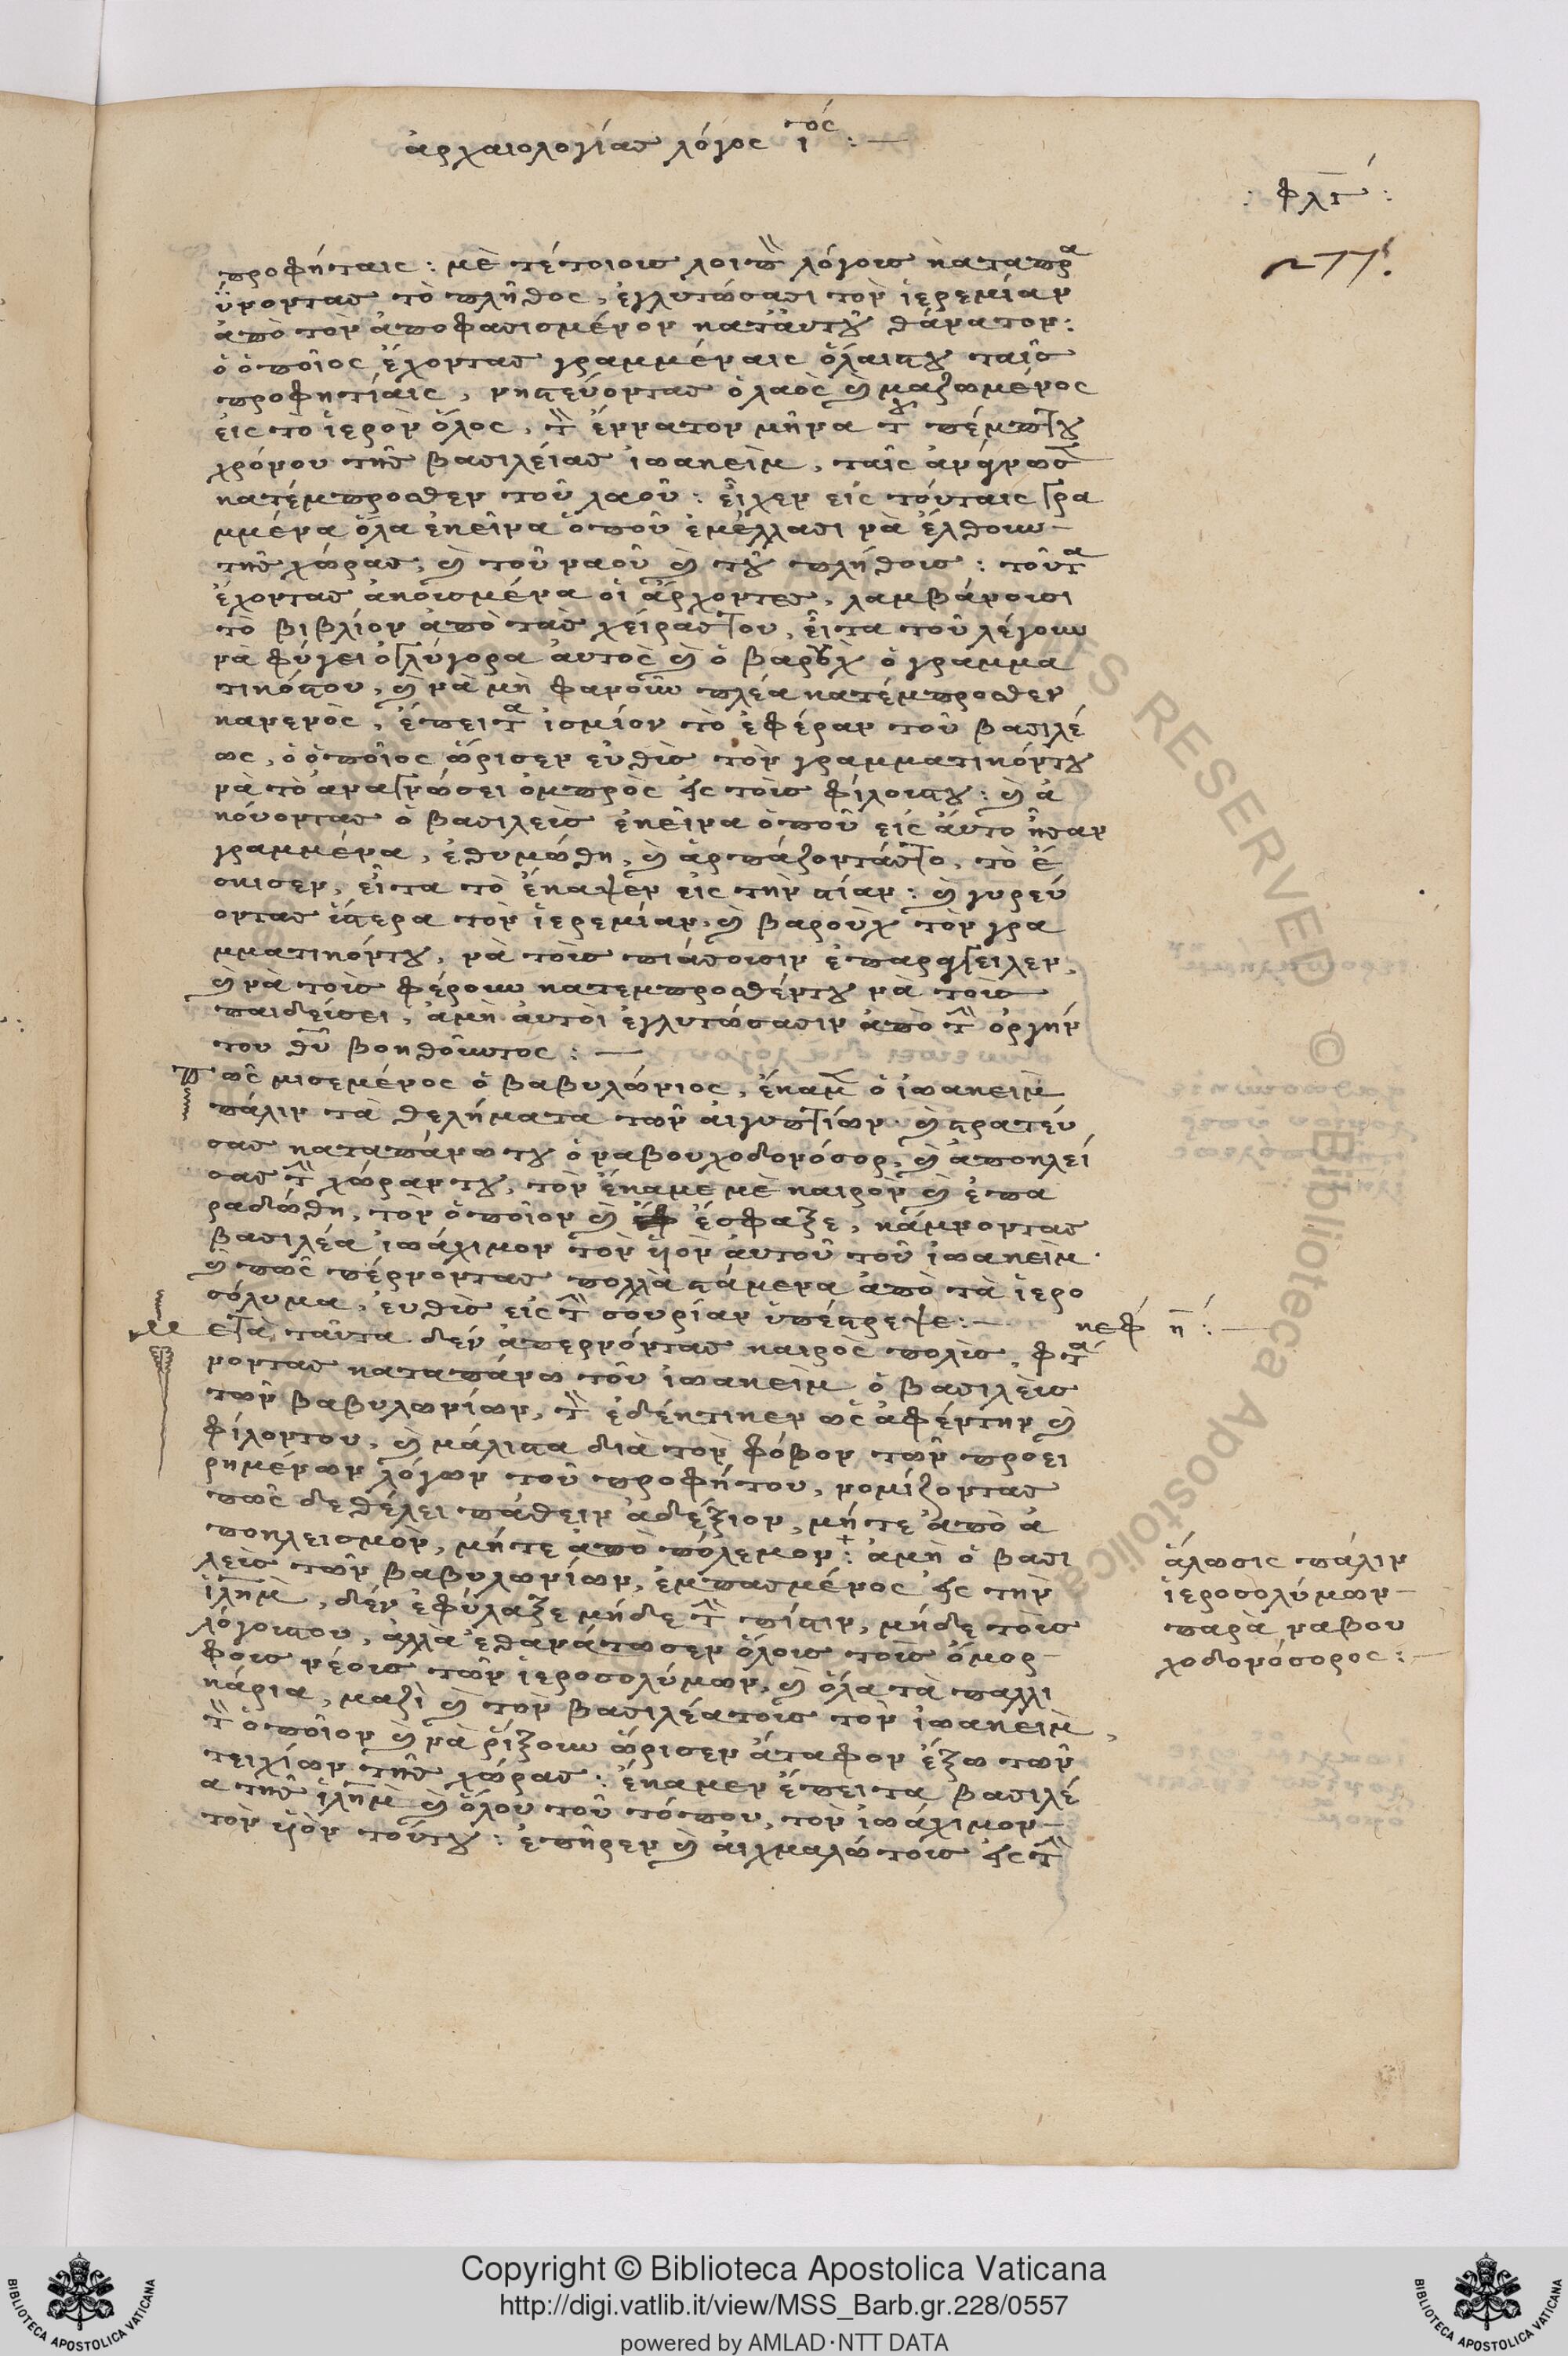 ἀρχαιολογίας λόγος ι τος : —
: φλγ :
277.
προφήταις : μὲ τέτοιους λοιπὸν λόγους καταπρα
ΰνοντας τὸ πλῆθος, ἐγλυτώσασι τὸν ἱερεμίαν
ἀπὸ τὸν ἀποφασισμένον κατ' αὐτοῦ θάνατον :
ὁ ὁποῖος ἔχοντας γραμμέναις ὅλαις του ταῖς
προφητίαις, νηστεύοντας ὁ λαὸς καὶ μαζωμένος
εἰς τὸ ἱερὸν ὅλος, τὸν ἔννατον μῆνα τοῦ πέμπτου
χρόνου τῆς βασιλείας ἰωακεὶμ, ταῖς ἀνάγνωσε
κατέμπροσθεν τοῦ λαοῦ : εἶχεν εἰς τούταις γρα
μμένα ὅλα ἐκεῖνα ὁποῦ ἐμέλλασι νὰ ἔλθουν
τῆς χώρας, καὶ τοῦ ναοῦ καὶ τοῦ πλήθους : τοῦτα
ἔχοντας ἀκουσμένα οἱ ἄρχοντες, λαμβάνουσι
τὸ βιβλίον ἀπὸ τὰς χεῖράς του, εἶτα τοῦ λέγουν
νὰ φύγει ὀγλύγορα αὐτὸς καὶ ὁ βαροὺχ ὁ γραμμα
τικός του, καὶ νὰ μὴ φανοῦν πλέα κατέμπροσθεν
κανενὸς, ἔπειτα ἰσμίον τὸ ἐφέραν τοῦ βασιλέ
ως, ὁ ὁποῖος ὥρισεν εὐθὺς τὸν γραμματικόν του
νὰ τὸ αναγνώσει ὀμπρὸς εἰς τοὺς φίλους του : καὶ ἀ
κούοντας ὁ βασιλεὺς ἐκεῖνα ὁποῦ εἰς αὐτὸ ἦσαν
γραμμένα, ἐθυμώθη, καὶ ἁρπάζοντάς το, τὸ ἔ
σκισεν, εἶτα τὸ ἔκαψεν εἰς τὴν στίαν : καὶ γυρεύ
οντας ὕστερα τὸν ἱερεμίαν, καὶ βαροὺχ τὸν γρα
μματικόν του, νὰ τοὺς πιάσουσιν ἐπαράγγειλεν,
καὶ νὰ τοὺς φέρουν κατεμπροσθέν του νὰ τοὺς
παιδεύσει, ἀμὴ αὐτοὶ ἐγλυτώσασιν ἀπὸ τὴν ὀργήν
του θῦ βοηθοῦντος : —
πῶς μισεμένος ὁ βαβυλώνιος, ἔκαμε ὁ ἰωακεὶμ
πάλιν τὰ θελήματα τῶν αἰγυπτίων καὶ στρατεύ
σας καταπάνω του ὁ ναβουχοδονόσορ, καὶ ἀποκλεί
σας τὴν χώραν του, τὸν ἔκαμε μὲ καιρὸν καὶ ἐπα
ραδώθη, τὸν ὁποῖον καὶ ἔσφαξε, κάμνοντας
βασιλέα ἰωάχιμον τὸν ὑὸν αὐτοῦ τοῦ ἰωακεὶμ.
καὶ πῶς πέρνοντας πολλὰ στάμενα ἀπὸ τὰ ἱερο
σόλυμα, εὐθὺς εἰς τὴν σουρίαν ὑπέστρεψε : —
κεφ η : —
μετὰ ταῦτα δὲν ἀπερνόντας καιρὸς πολὺς, φτα
νοντας καταπάνω τοῦ ἰωακεὶμ ὁ βασιλεὺς
τῶν βαβυλωνίων, τὸν ἐδέκτικεν ὡς ἀφέντην καὶ
φίλον του, καὶ μάλιστα διὰ τὸν φόβον τῶν προει
ρημενων λόγων τοῦ προφήτου, νομίζοντας
πῶς δὲ θέλει πάθειν ἀδέξιον, μήτε ἀπὸ ἀ
ποκλεισμὸν, μήτε ἀπὸ πόλεμον : ἀμὴ ὁ βασι
λεὺς τῶν βαβυλωνίων, ἐμπασμένος εἰς τὴν
ἱλημ, δὲν ἐφύλαξε μήδε τὴν πίστιν, μήδε τοὺς
λόγους του, ἀλλὰ ἐθανάτωσεν ὅλους τοὺς ὄμορ
φους νέους τῶν ἱεροσολύμων, καὶ ὅλα τὰ παλλι
κάρια, μαζὶ καὶ τὸν βασιλέα τοὺς τὸν ἰωακεὶμ,
τὸν ὁποῖον καὶ νὰ ῥίξουν ὥρισεν ἄταφον ἔξω τῶν
τειχίων τῆς χώρας : ἔκαμεν ἔπειτα βασιλέ
α τῆς ἱλημ καὶ ὅλου τοῦ τόπου, τὸν ἰωάχιμον
τὸν ὑὸν τούτου : ἐπῆρεν καὶ αἰχμαλώτους εἰς τὴν
ἅλωσις πάλιν
ἱεροσολύμων
παρὰ ναβου
χοδονόσορος : —
Copyright © Biblioteca Apostolica Vaticana
http://digi.vatlib.it/view/MSS_Barb.gr.228/0557
powered by AMLAD·NTT DATA